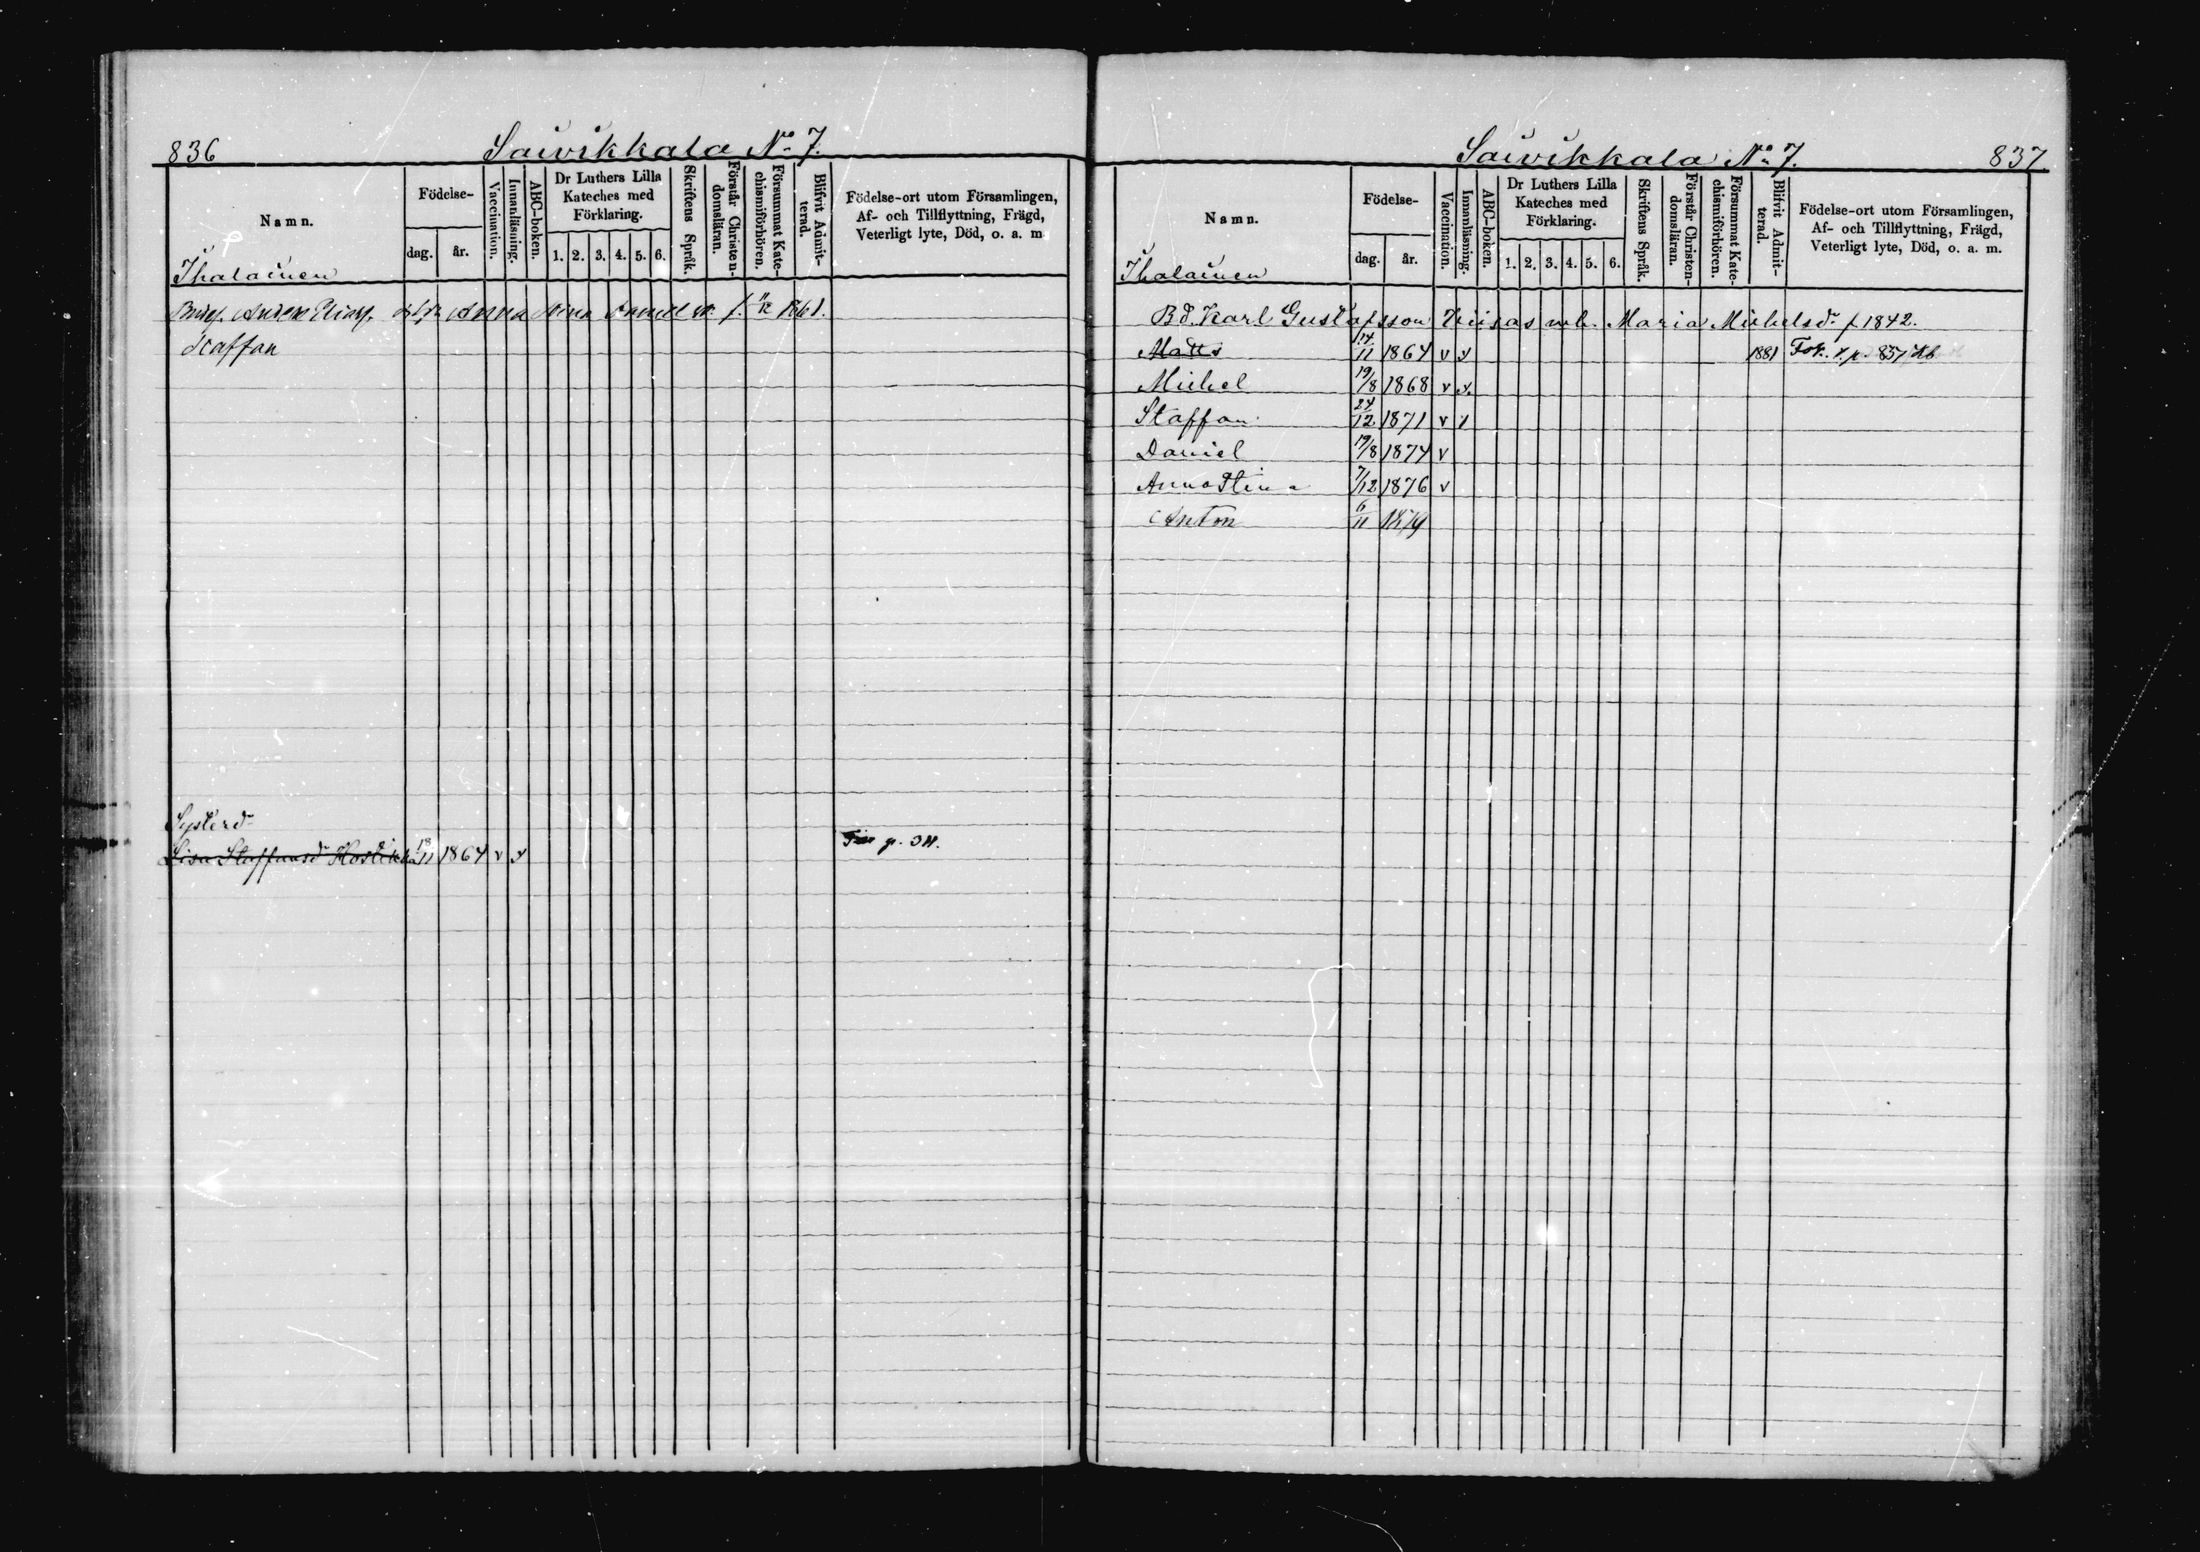 836
Saivikkala No 7.
Namn.
Födelse-
dag.
år.
Vaccination.
Innanläsning.
ABC-boken.
Dr Luthers Lilla
Kateches med
Förklaring.
1. 2. 3. 4. 5. 6.
Skriftens Språk.
Förstår Christen-
domsläran.
Försummat Kate-
chismiförhören.
Blifvit Admit-
terad.
Födelse-ort utom Församlingen,
Af- och Tillflyttning, Frägd,
Veterligt lyte, Död, o. a. m.
Ihalainen
Anders Eliasp. Anna Stina f. 1861.
Staffan
Systerdr
Lisa Staffansdr Hostikka 18/11 1864 v x p. 34.
Saivikkala No 7.
837
Namn.
Födelse-
dag.
år.
Vaccination.
Innanläsning.
ABC-boken.
Dr Luthers Lilla
Kateches med
Förklaring.
1. 2. 3. 4. 5. 6.
Skriftens Språk.
Förstår Christen-
domsläran.
Försummat Kate-
chismiförhören.
Blifvit Admit-
terad.
Födelse-ort utom Församlingen,
Af- och Tillflyttning, Frägd,
Veterligt lyte, Död, o. a. m.
Ihalainen
Bd. Karl Gustafsson Kiisas m.h. Maria Michelsdr f 1842.
Matts 14/11 1864 v x 1881 p. 857 Kb
Michel 19/8 1868 v x.
Staffan 24/12 1871 v /
Daniel 19/8 1874 v
Anna Stina 7/12 1876 v
Anton 6/11 1879